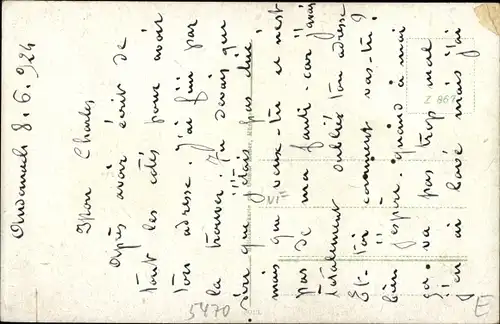 Andernach 8.6.924
Mon Charles
Après avoir écrit de
tout les cotés pour avoir
ton adresse. J'ai fini par
la trouver. Tu devais peu
dire que j'étais pas chic
mais que veux-tu ce n'est
pas de ma faute. car j'avais
totalement oublié ton adresse
Et toi comment vas-tu?
bien j'espère. quand à moi
ça va pas trop mal
j'en ai bavé mais j'ai
Z 869
5470
E